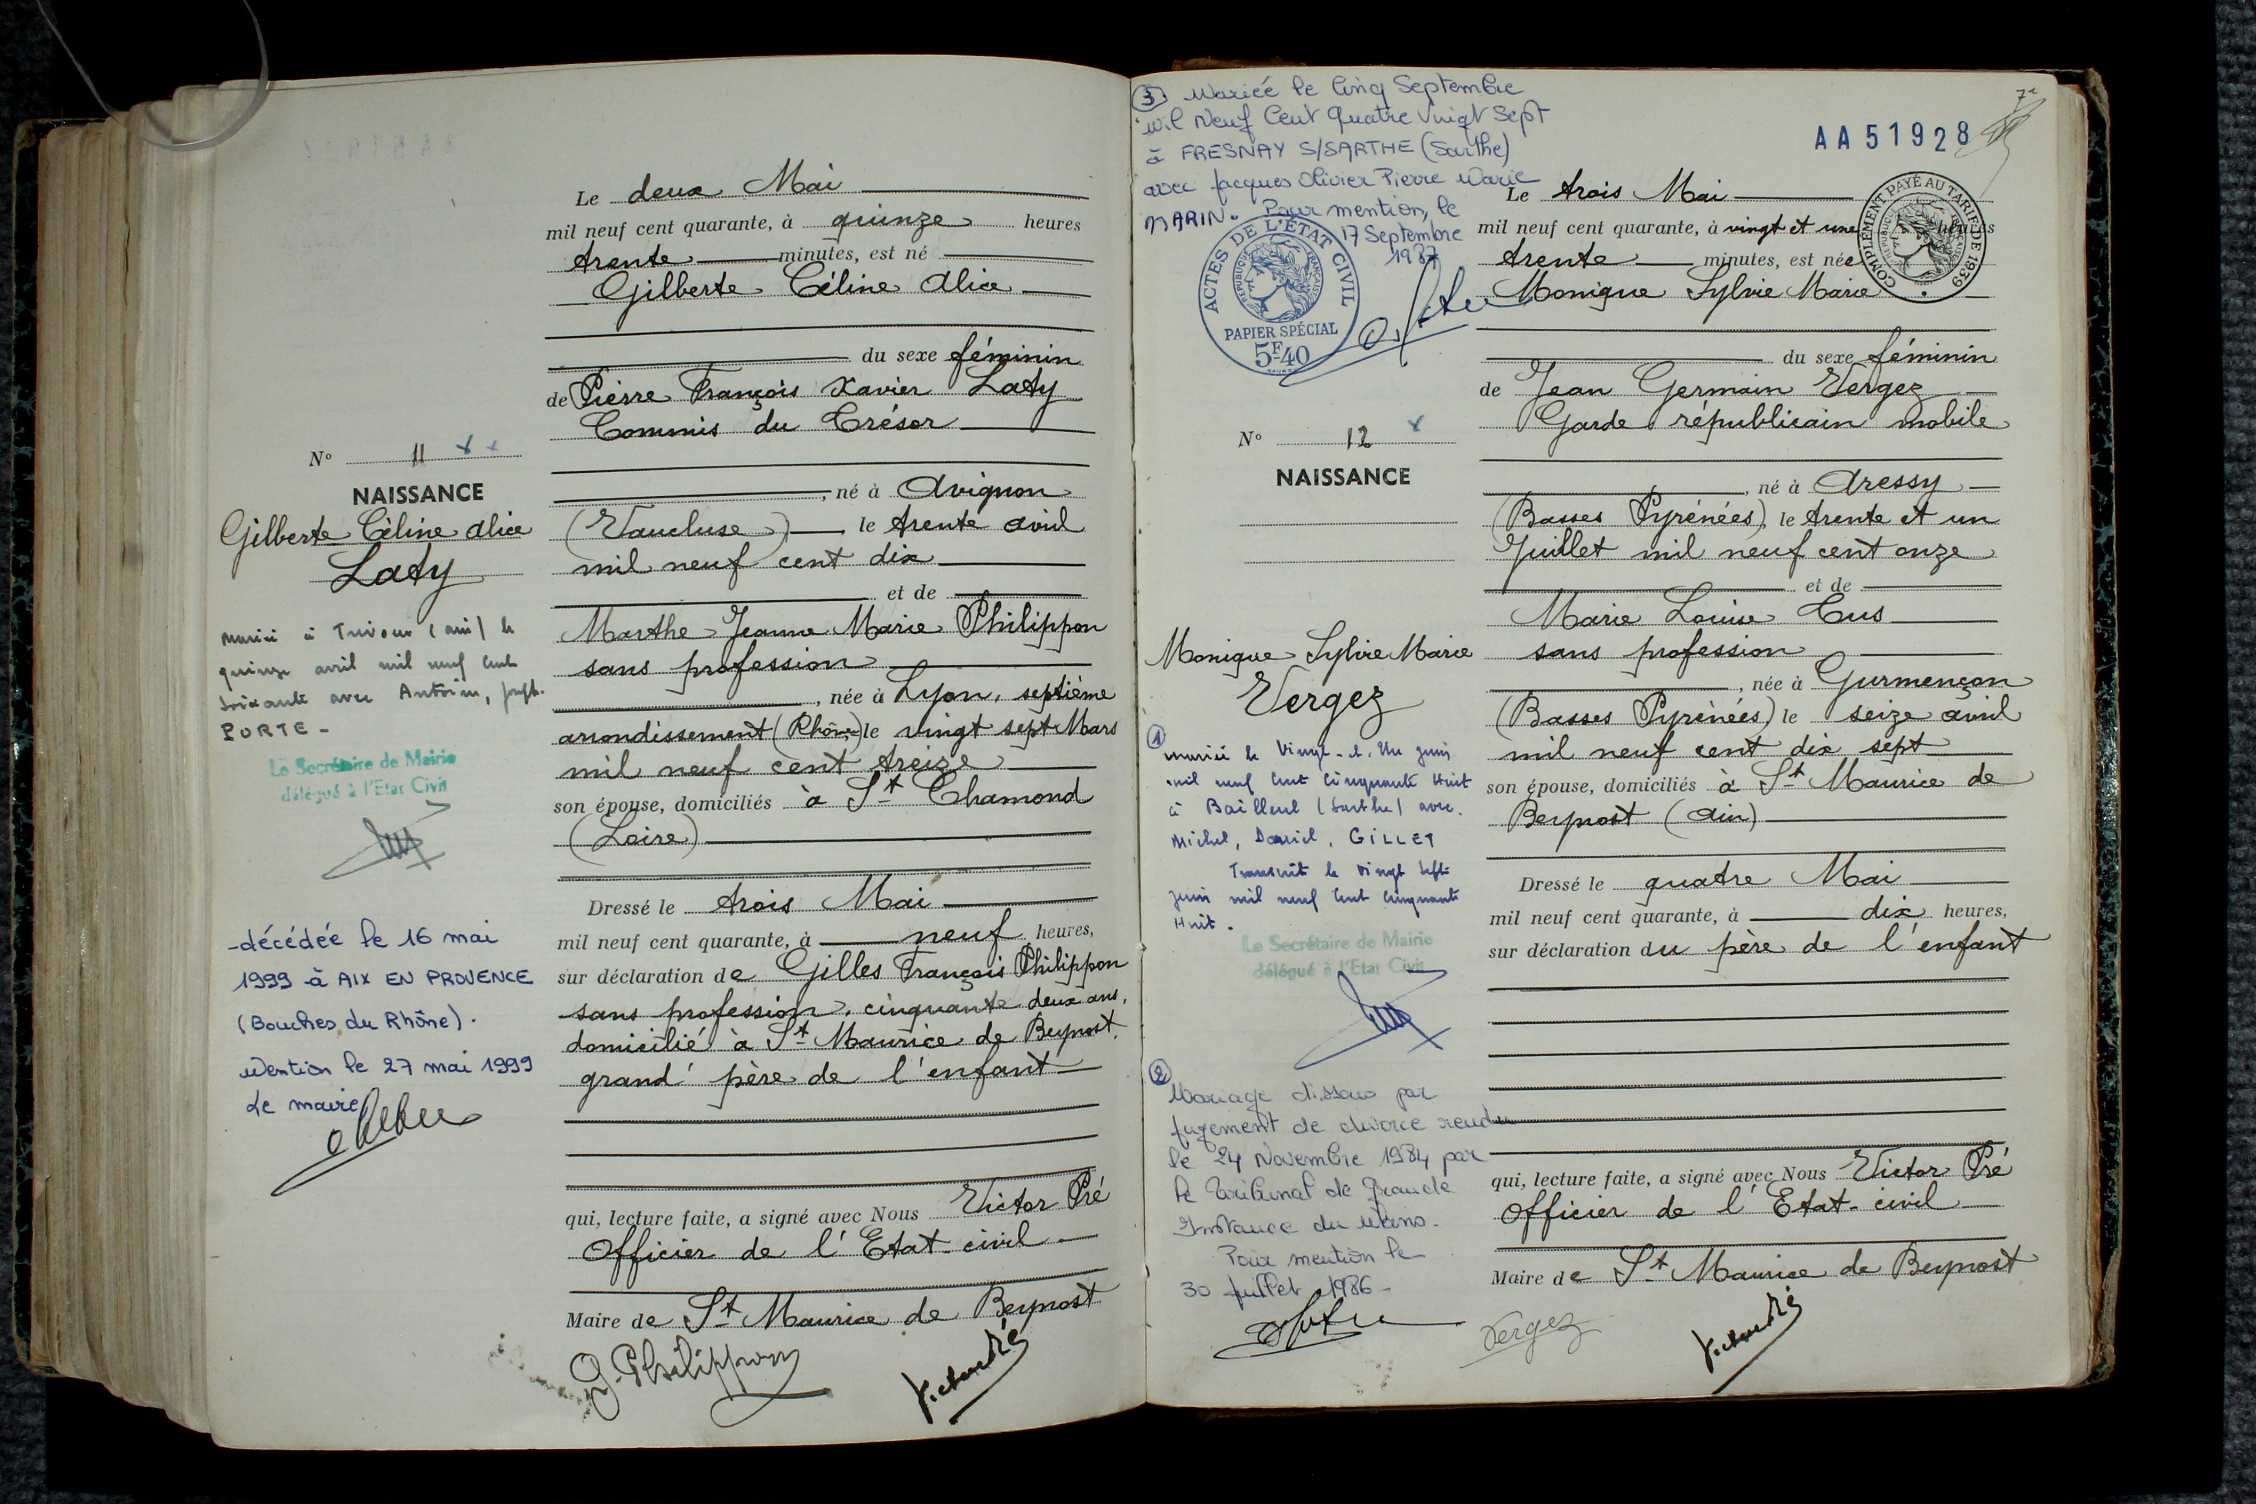 Le deux Mai
mil neuf cent quarante, à quinze heures
trente minutes, est né
Gilberte Céline Alice
du sexe féminin
de Pierre François Xavier Laty
Commis du Trésor
né à Avignon
(Vaucluse) le trente avril
mil neuf cent dix
et de
Marthe Jeanne Marie Philippon
sans profession
, née à Lyon, septième
arrondissement (Rhône) le vingt sept Mars
mil neuf cent treize
son épouse, domiciliés à St Chamond
(Loire)
Dressé le trois Mai
mil neuf cent quarante, à neuf heures,
sur déclaration de Gilles François Philippon
sans profession, cinquante deux ans,
domicilié à St Maurice de Beynost,
grand' père de l'enfant
qui, lecture faite, a signé avec Nous Victor Pré
Officier de l'Etat-civil
Maire de St Maurice de Beynost
G. Philippon
Victor Pré
N° 11
NAISSANCE
Gilberte Céline Alice
Laty
Mariée à Trévoux (ain) le
quinze avril mil neuf cent
soixante avec Antoine, Joseph
PORTE -
Le Secrétaire de Mairie
délégué à l'Etat Civil
- décédée le 16 mai
1999 à AIX EN PROVENCE
(Bouches du Rhône).
Mention le 27 mai 1999
Le maire
③ Mariée le Cinq Septembre
Mil Neuf Cent Quatre Vingt Sept
à FRESNAY S/SARTHE (Sarthe)
avec Jacques Olivier Pierre Marie
MARIN. Pour mention, le
17 Septembre
1987
ACTES DE L'ÉTAT CIVIL
RÉPUBLIQUE FRANÇAISE
PAPIER SPÉCIAL
5F40
N° 12
NAISSANCE
Monique Sylvie Marie
Vergez
① Mariée le Vingt-et-Un juin
mil neuf cent Cinquante Huit
à Bailleul (Sarthe) avec
Michel, Daniel, GILLET
Transcrit le Vingt Sept
juin mil neuf cent Cinquante
Huit.
Le Secrétaire de Mairie
délégué à l'Etat Civil
②
Mariage dissous par
jugement de divorce rendu
le 24 Novembre 1984 par
le Tribunal de Grande
Instance du Mans.
Pour mention le
30 Juillet 1986 -
AA51928
7e
COMPLÉMENT PAYÉ AU TARIF DE 1939
RÉPUBLIQUE FRANÇAISE
Le trois Mai
mil neuf cent quarante, à vingt et une heures
trente minutes, est née
Monique Sylvie Marie
du sexe féminin
de Jean Germain Vergez
Garde républicain mobile
, né à Aressy
(Basses Pyrénées), le trente et un
Juillet mil neuf cent onze
et de
Marie Louise Cus
sans profession
, née à Gurmençon
(Basses Pyrénées) le seize avril
mil neuf cent dix sept
son épouse, domiciliés à St Maurice de
Beynost (Ain)
Dressé le quatre Mai
mil neuf cent quarante, à dix heures,
sur déclaration du père de l'enfant
qui, lecture faite, a signé avec Nous Victor Pré
Officier de l'Etat-civil
Maire de St Maurice de Beynost
Vergez
Victor Pré